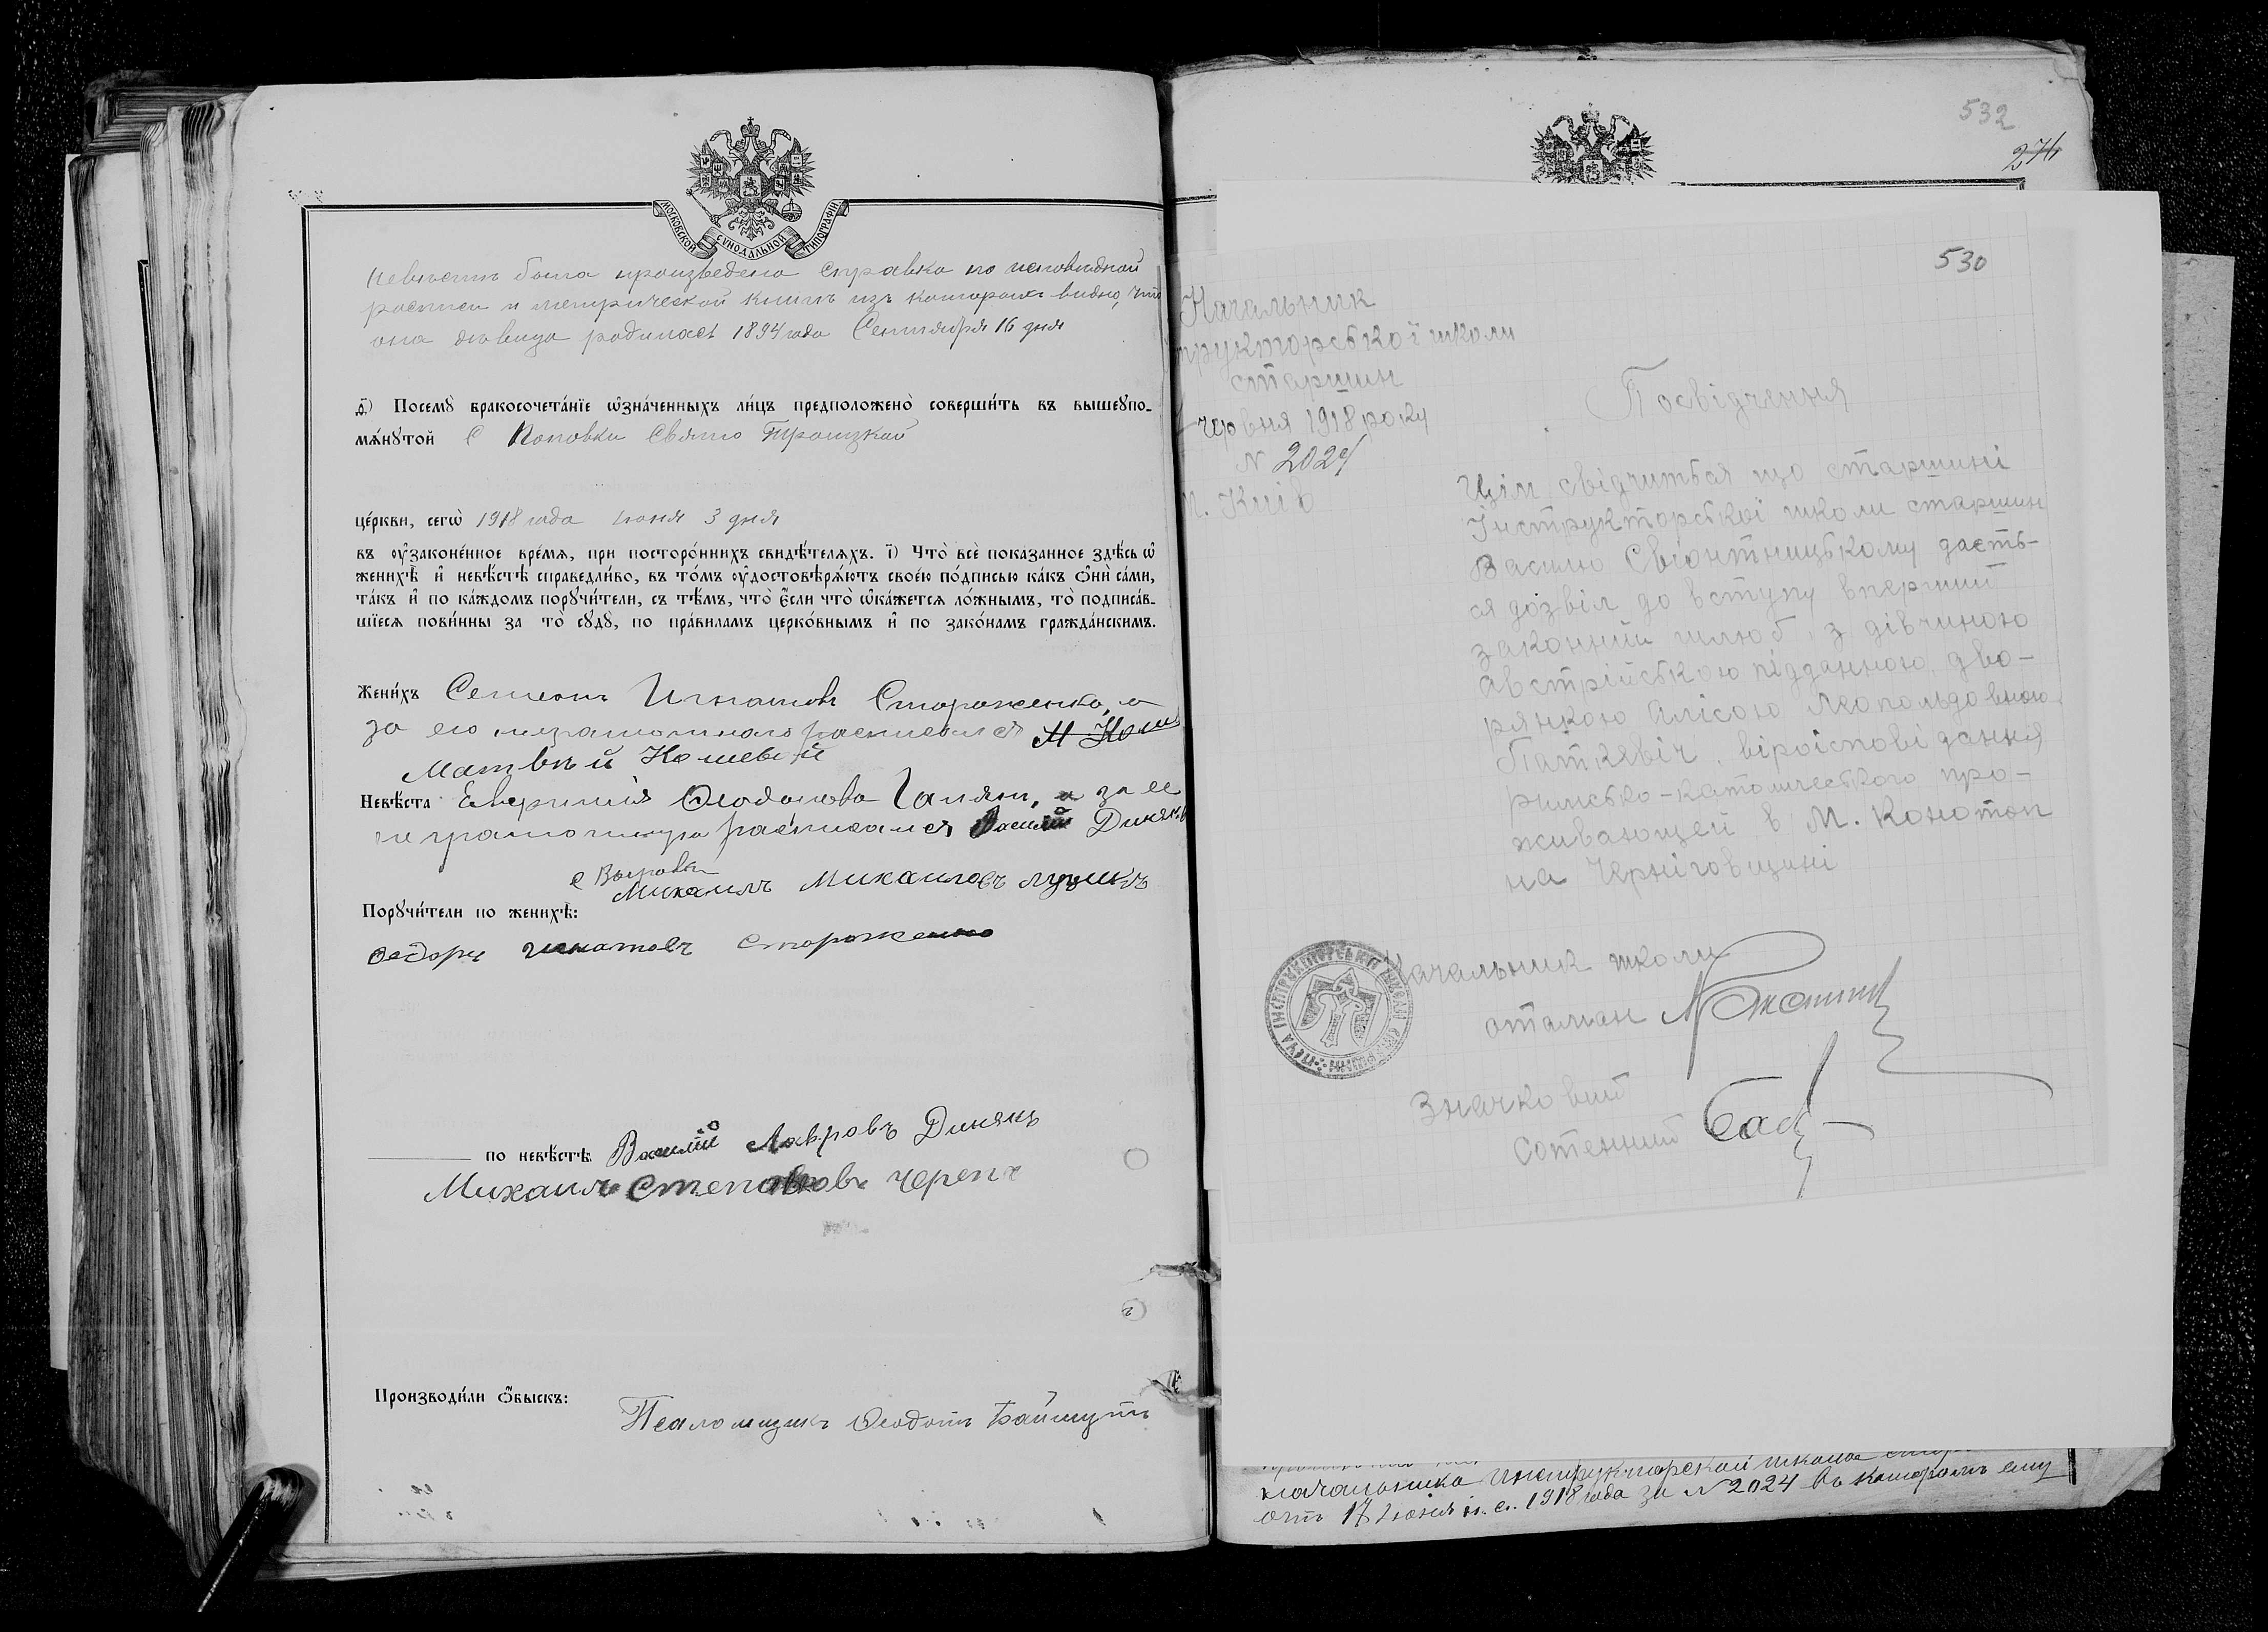 МОСКОВСКОЙ СѴНОДАЛЬНОЙ ТИПОГРАФІИ
невѣстѣ была произведена справка по исповѣдной
росписи и метрической книгѣ изъ которыхъ видно, что
она дѣвица родилась 1894 года Сентября 16 дня
д҃) Посемꙋ̀ бракосочета́нїе ѡ҆зна́ченныхъ ли́цъ предположено̀ соверши́ть въ вышеꙋпо-
мѧ́нꙋтой С Поповки Свято Троицкой
це́ркви, сегѡ̀ 1918 года Июня 3 дня
въ ᲂу҆зако́ненное вре́мѧ, при посторо́ннихъ свидѣ́телѧхъ. і҃) Что̀ всѐ пока́занное здѣ́сь ѡ҆
женихѣ̀ и҆ невѣ́стѣ справедли́во, въ то́мъ ᲂу҆достовѣрѧ́ютъ свое́ю по́дписью ка́къ ѻ҆нѝ са́ми,
та́къ и҆ по ка́ждомъ порꙋчи́тели, съ тѣ́мъ, что̀ є҆́сли что̀ ѡ҆ка́жетсѧ ло́жнымъ, то̀ подписа́в-
шїесѧ пови́нны за то̀ сꙋдꙋ̀, по пра́виламъ церко́внымъ и҆ по зако́намъ гражда́нскимъ.
Жени́хъ Семеонъ Игнатовъ Стороженко, а
за его неграмотнаго росписался М Коше
Матвѣй Кошевой
Невѣ́ста Евфимія Ѳеодотова, а за ее
неграмотную расписался Василий Динякъ
Михаилъ Михаиловъ
Порꙋчи́тели по женихѣ̀:
Ѳедоръ Игнатовъ Стороженко
по невѣ́стѣ Василий Лавровъ Динякъ
Михаилъ Степановъ Черепъ
Производи́ли ѻ҆́быскъ:
Псаломщикъ Ѳеодотъ
532
276
530
Начальник
трукторської школи
старшин
червня 1918 року
N 2024
м. Київ
Посвідчення
Цім свідчиться що старшині
Інструкторської школи старшин
Василю Свіонтницькому даєть-
ся дозвіл до вступу вперший
законний шлюб з дівчиною
австрійською підданною, дво-
рянкою Алісою Леопольдовною
Паткевіч, віроісповідання
римсько-католичеського про-
живающей в М. Конотоп
на Черніговщині
Начальник школи
отаман
Значковий
Сотенний
начальника Инструкторской школы
отъ 17 Июня н. с. 1918 года за N 2024 въ которомъ ему